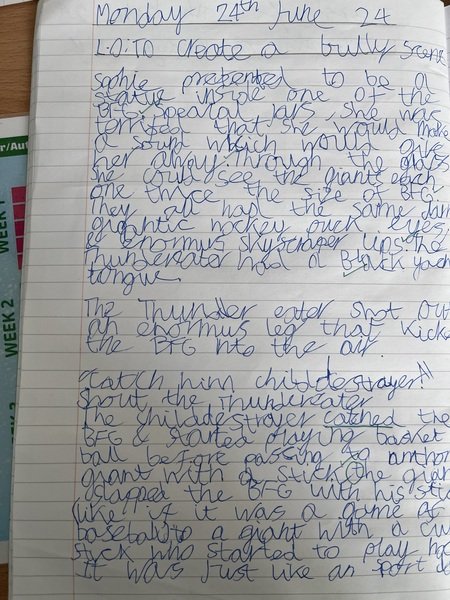 Monday 24th June 24
L.O:TO create a bully scene
sophie pretented to be a
statue inside one of the
BFG speacal jars, she was
terrified that she would make
a sound which would give
her away. Through the glass
she could see the giants each
one twice the size of BFG
They all had the same dark
gigantic hockey puck eyes,
& enormus skyscraper lips the
Thundereater had a Black
tongue.
The Thunder eater shot out
an enormus leg that kick
the BFG into the air
"Catch him childdestrayer!"
Shout the Thundereater
The childdestrayer catched the
BFG & started playing basket
ball before passing to
giant with a stick the giant
slapped the BFG with his stick
(like if it was a game of
baseball) to a giant with a
stick who started to play
It was just like an sport
WEEK 1
WEEK 2
r/Aut